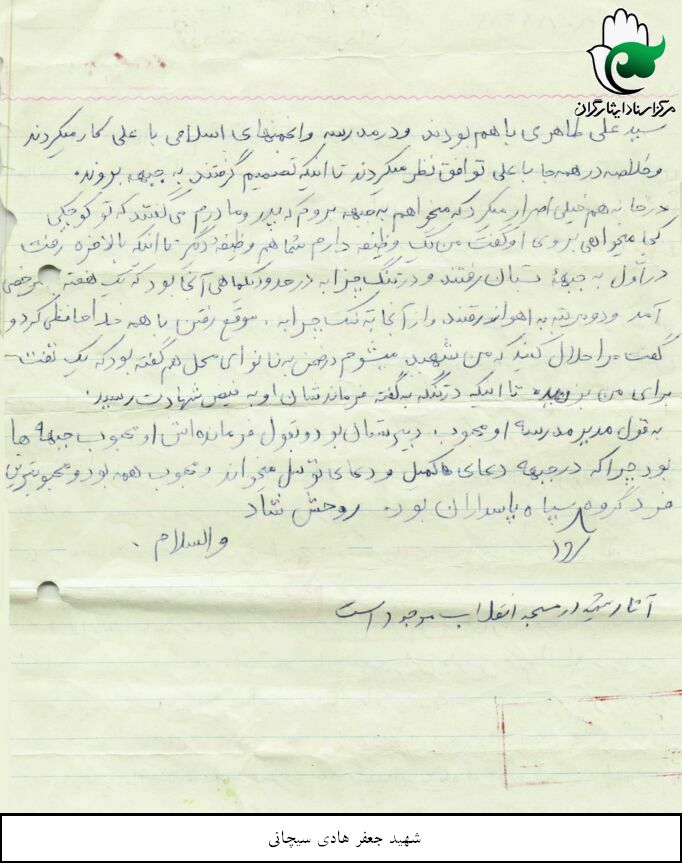 مرکز اسناد ایثارگران
سید علی طاهری باهم بودند ودر مدرسه وانجمنهای اسلامی با علی کار میکردند
وخلاصه در همه جا با علی توافق نظر میکردند تا اینکه تصمیم گرفتند به جبهه بروند.
در خانه هم خیلی اصرار میکرد که میخواهم به جبهه بروم که پدر ومادرم می گفتند که تو کوچکی
کجا میخواهی بروی او گفت من یک وظیفه دارم شما هم وظیفه دگر تا اینکه بالاخره رفت
در اول به جبههٔ بستان رفتند و در تنگ چزابه در حدود یکماهی آنجا بود که یک هفته مرخصی
آمد و دو مرتبه به اهواز رفتند و از آنجا به تنگ چزابه . موقع رفتن با همه خدا حافظی کرد و
گفت مرا حلال کنید که من شهید میشوم در ضمن به نانوای محل هم گفته بود که یک نفت
برای من تا اینکه در تنگه به گفته فرماندشان او به فیض شهادت رسید.
به قول مدیر مدرسه او محبوب دبیرستان بود و بقول فرمانده اش او محبوب جبهه ها
بود چرا که در جبهه دعای کمیل و دعای توسل میخواند و محبوب همه بود و محبوبترین
فرد گروه سپاه پاسداران بود. روحش شاد
والسلام .
آثار شهید در مسجد انقلاب موجود است
شهید جعفر هادی سیچانی